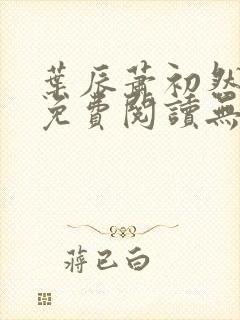 葉辰蕭初然
免費閱讀無
蔣已白